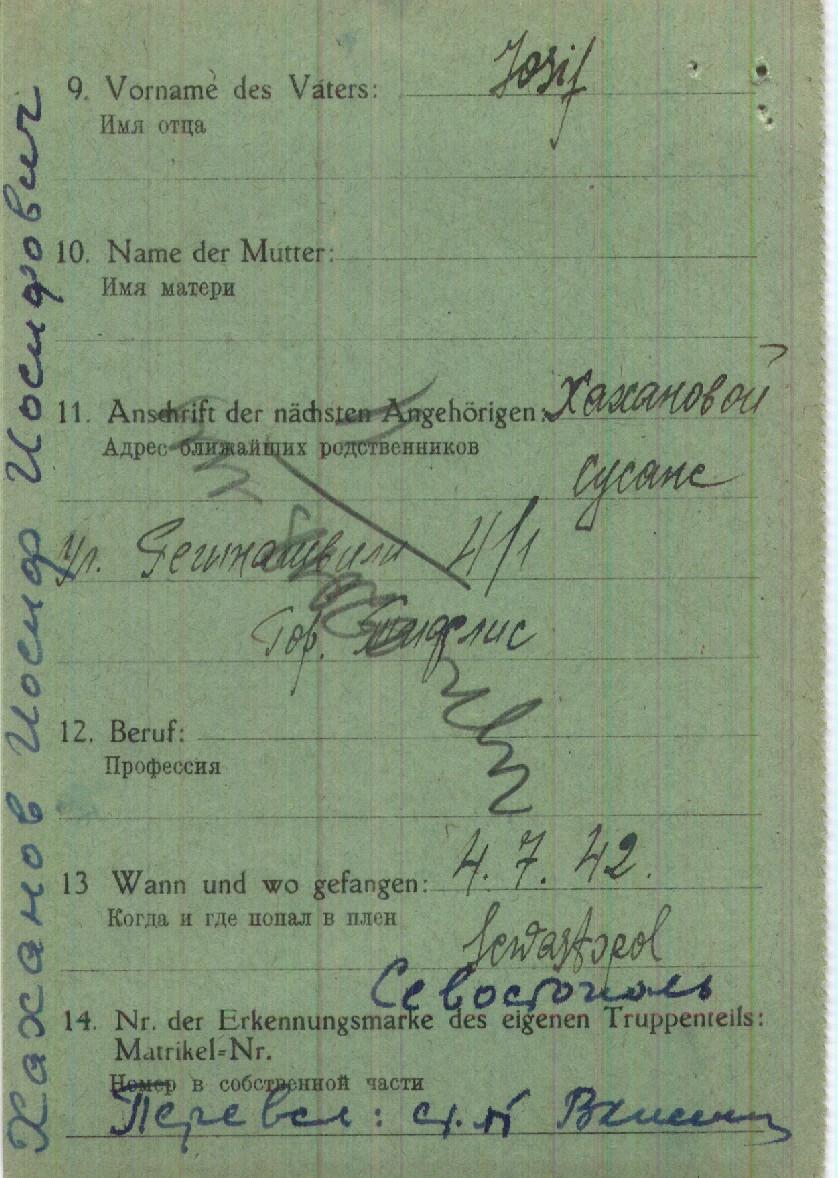 9. Vorname des Vaters: Josif
Имя отца
10. Name der Mutter:
Имя матери
11. Anschrift der nächsten Angehörigen: Хахановой
Адрес ближайших родственников
Сусане
Ул. 4/1
Гор. Тифлис
12. Beruf:
Профессия
13 Wann und wo gefangen: 4. 7. 42.
Когда и где попал в плен
Sewastopol
Севостополь
14. Nr. der Erkennungsmarke des eigenen Truppenteils:
Matrikel-Nr.
Номер в собственной части
Перевел:
Хаханов Иосиф Иосифович